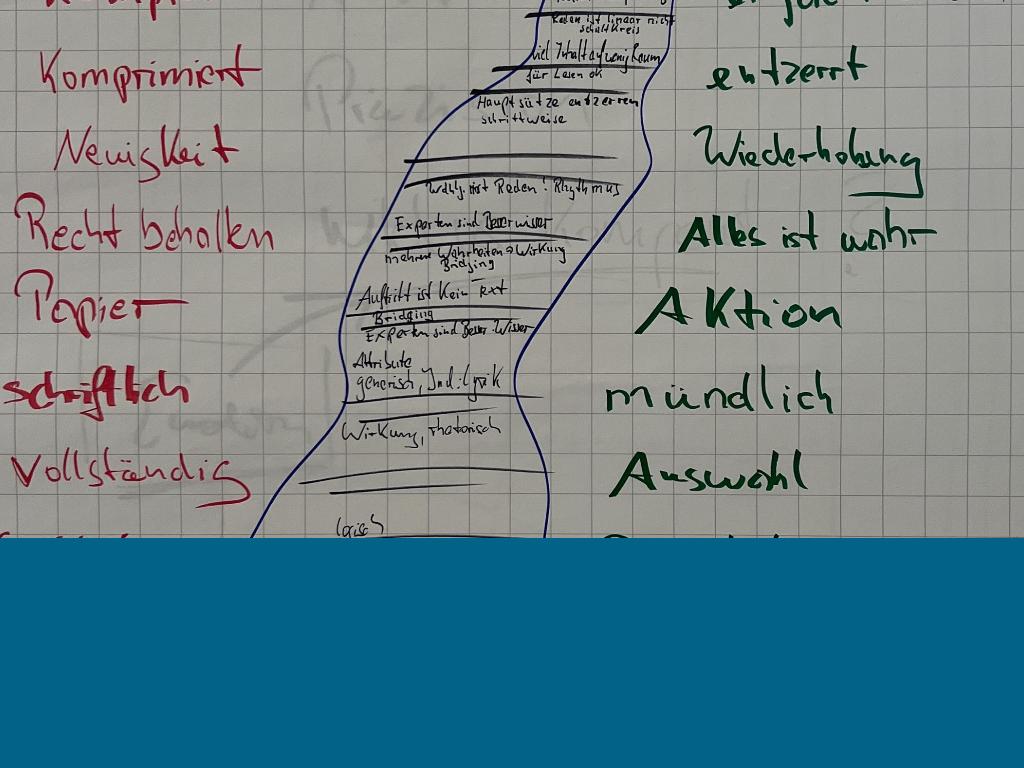 Reden ist linear nicht
schaltkreis
viel Inhalt auf wenig Raum
für Lesen ok
Komprimiert
entzerrt
Hauptsätze entzerren
schrittweise
Neuigkeit
Wiederholung
ist Reden! Rhythmus
Recht behalten
Experten sind Besserwisser
Alles ist wahr
mehrere Wahrheiten → Wirkung
Bridging
Papier
Auftritt ist Kein Text
AKtion
Bridging
Experten sind Besser-Wisser
schriftlich
Attribute
generisch, Ind.: Lyrik
mündlich
Wirkung, rhetorisch
Vollständig
Auswahl